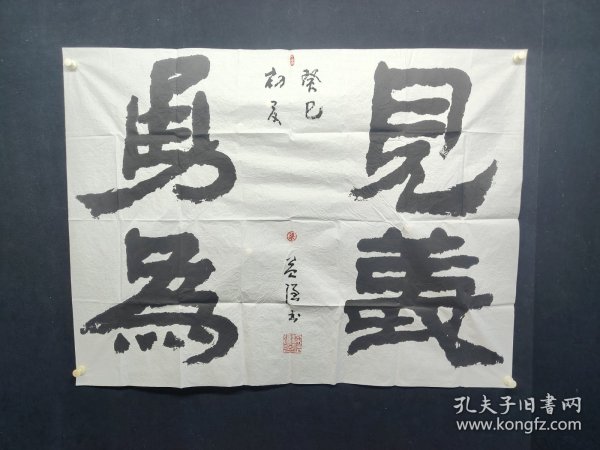 見義
勇為
癸巳
初夏
孔夫子旧書网
www.kongfz.com